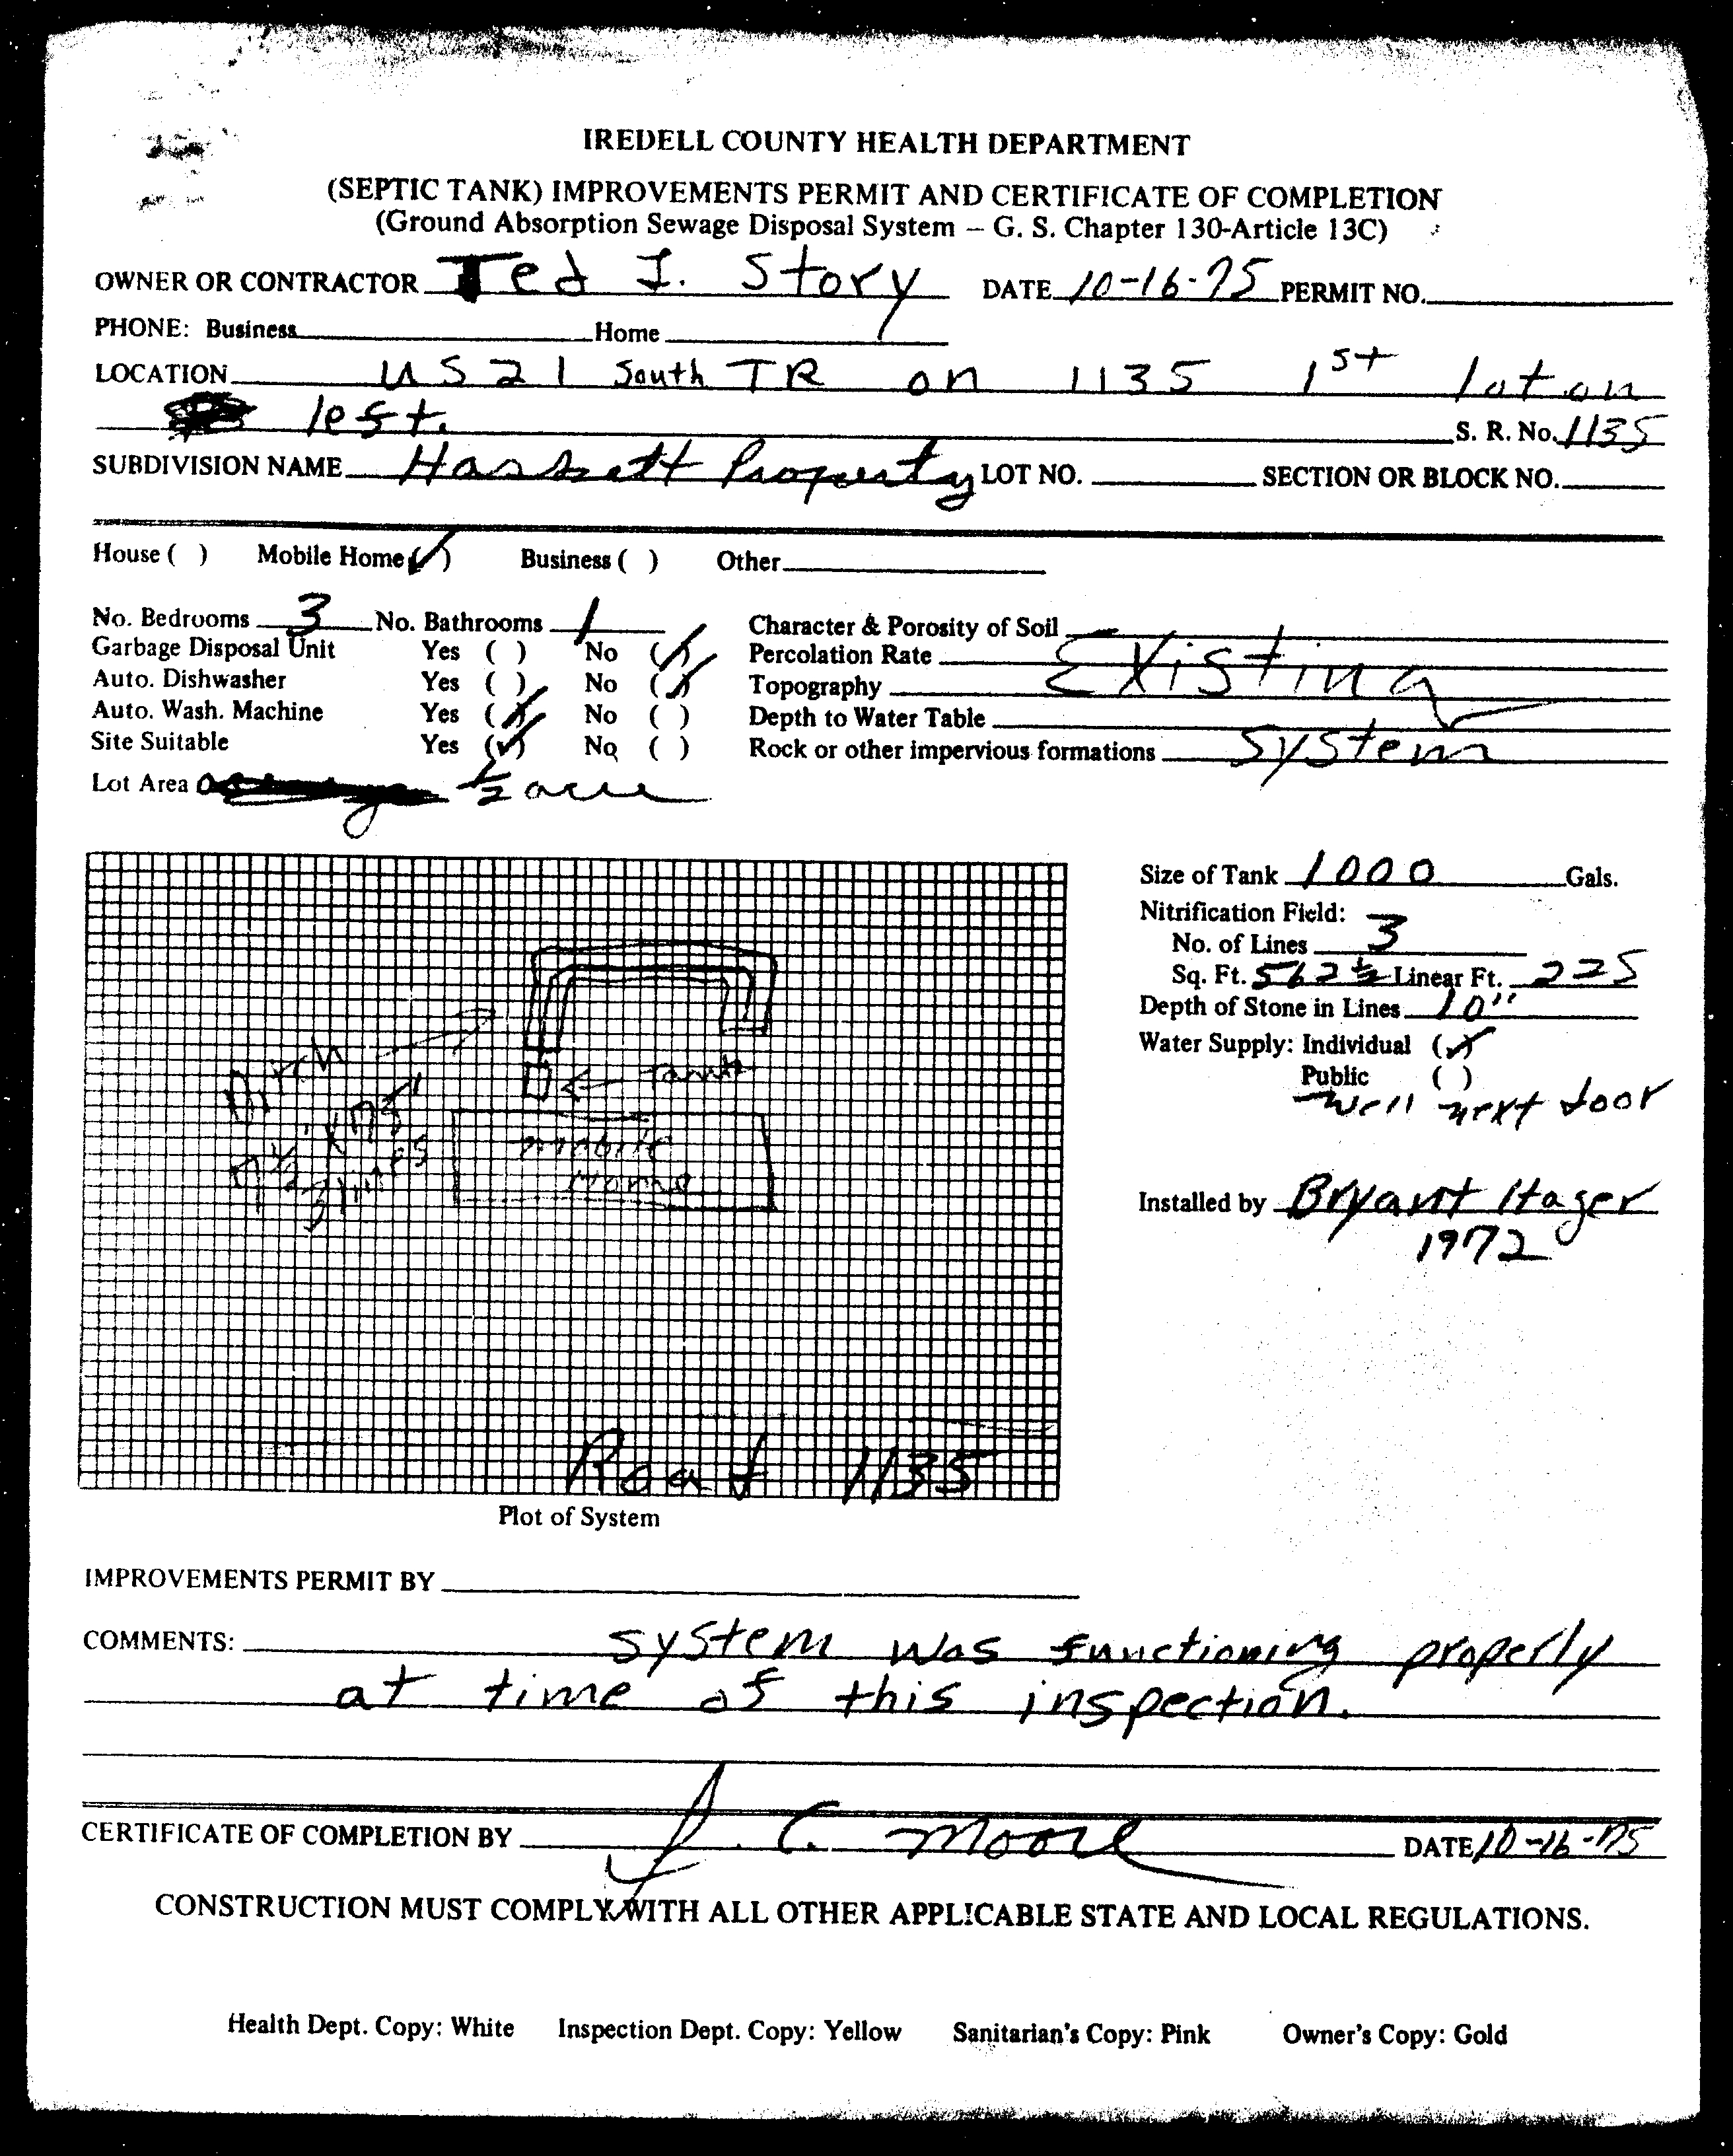 IREDELL COUNTY HEALTH DEPARTMENT
(SEPTIC TANK) IMPROVEMENTS PERMIT AND CERTIFICATE OF COMPLETION
(Ground Absorption Sewage Disposal System – G. S. Chapter 130-Article 13C)
OWNER OR CONTRACTOR Ted I. Story DATE 10-16-75 PERMIT NO.
PHONE: Business Home
LOCATION US 21 South TR on 1135 1st lot on
left. S. R. No. 1135
SUBDIVISION NAME Property LOT NO. SECTION OR BLOCK NO.
House ( ) Mobile Home (✓) Business ( ) Other
No. Bedrooms 3 No. Bathrooms 1 Character & Porosity of Soil
Garbage Disposal Unit Yes ( ) No (✓) Percolation Rate Existing
Auto. Dishwasher Yes ( ) No (✓) Topography
Auto. Wash. Machine Yes (✓) No ( ) Depth to Water Table
Site Suitable Yes (✓) No ( ) Rock or other impervious formations System
Lot Area ½ acre
Size of Tank 1000 Gals.
Nitrification Field:
No. of Lines 3
Sq. Ft. 562 ½ Linear Ft. 225
Depth of Stone in Lines 10"
Water Supply: Individual (✓)
Public ( )
Well next door
Ditch
Tank
3 lines
Mobile
Home
Installed by Bryant Hager
1972
Road 1135
Plot of System
IMPROVEMENTS PERMIT BY
COMMENTS: System was functioning properly
at time of this inspection.
CERTIFICATE OF COMPLETION BY J. C. Moore DATE 10-16-75
CONSTRUCTION MUST COMPLY WITH ALL OTHER APPLICABLE STATE AND LOCAL REGULATIONS.
Health Dept. Copy: White Inspection Dept. Copy: Yellow Sanitarian's Copy: Pink Owner's Copy: Gold